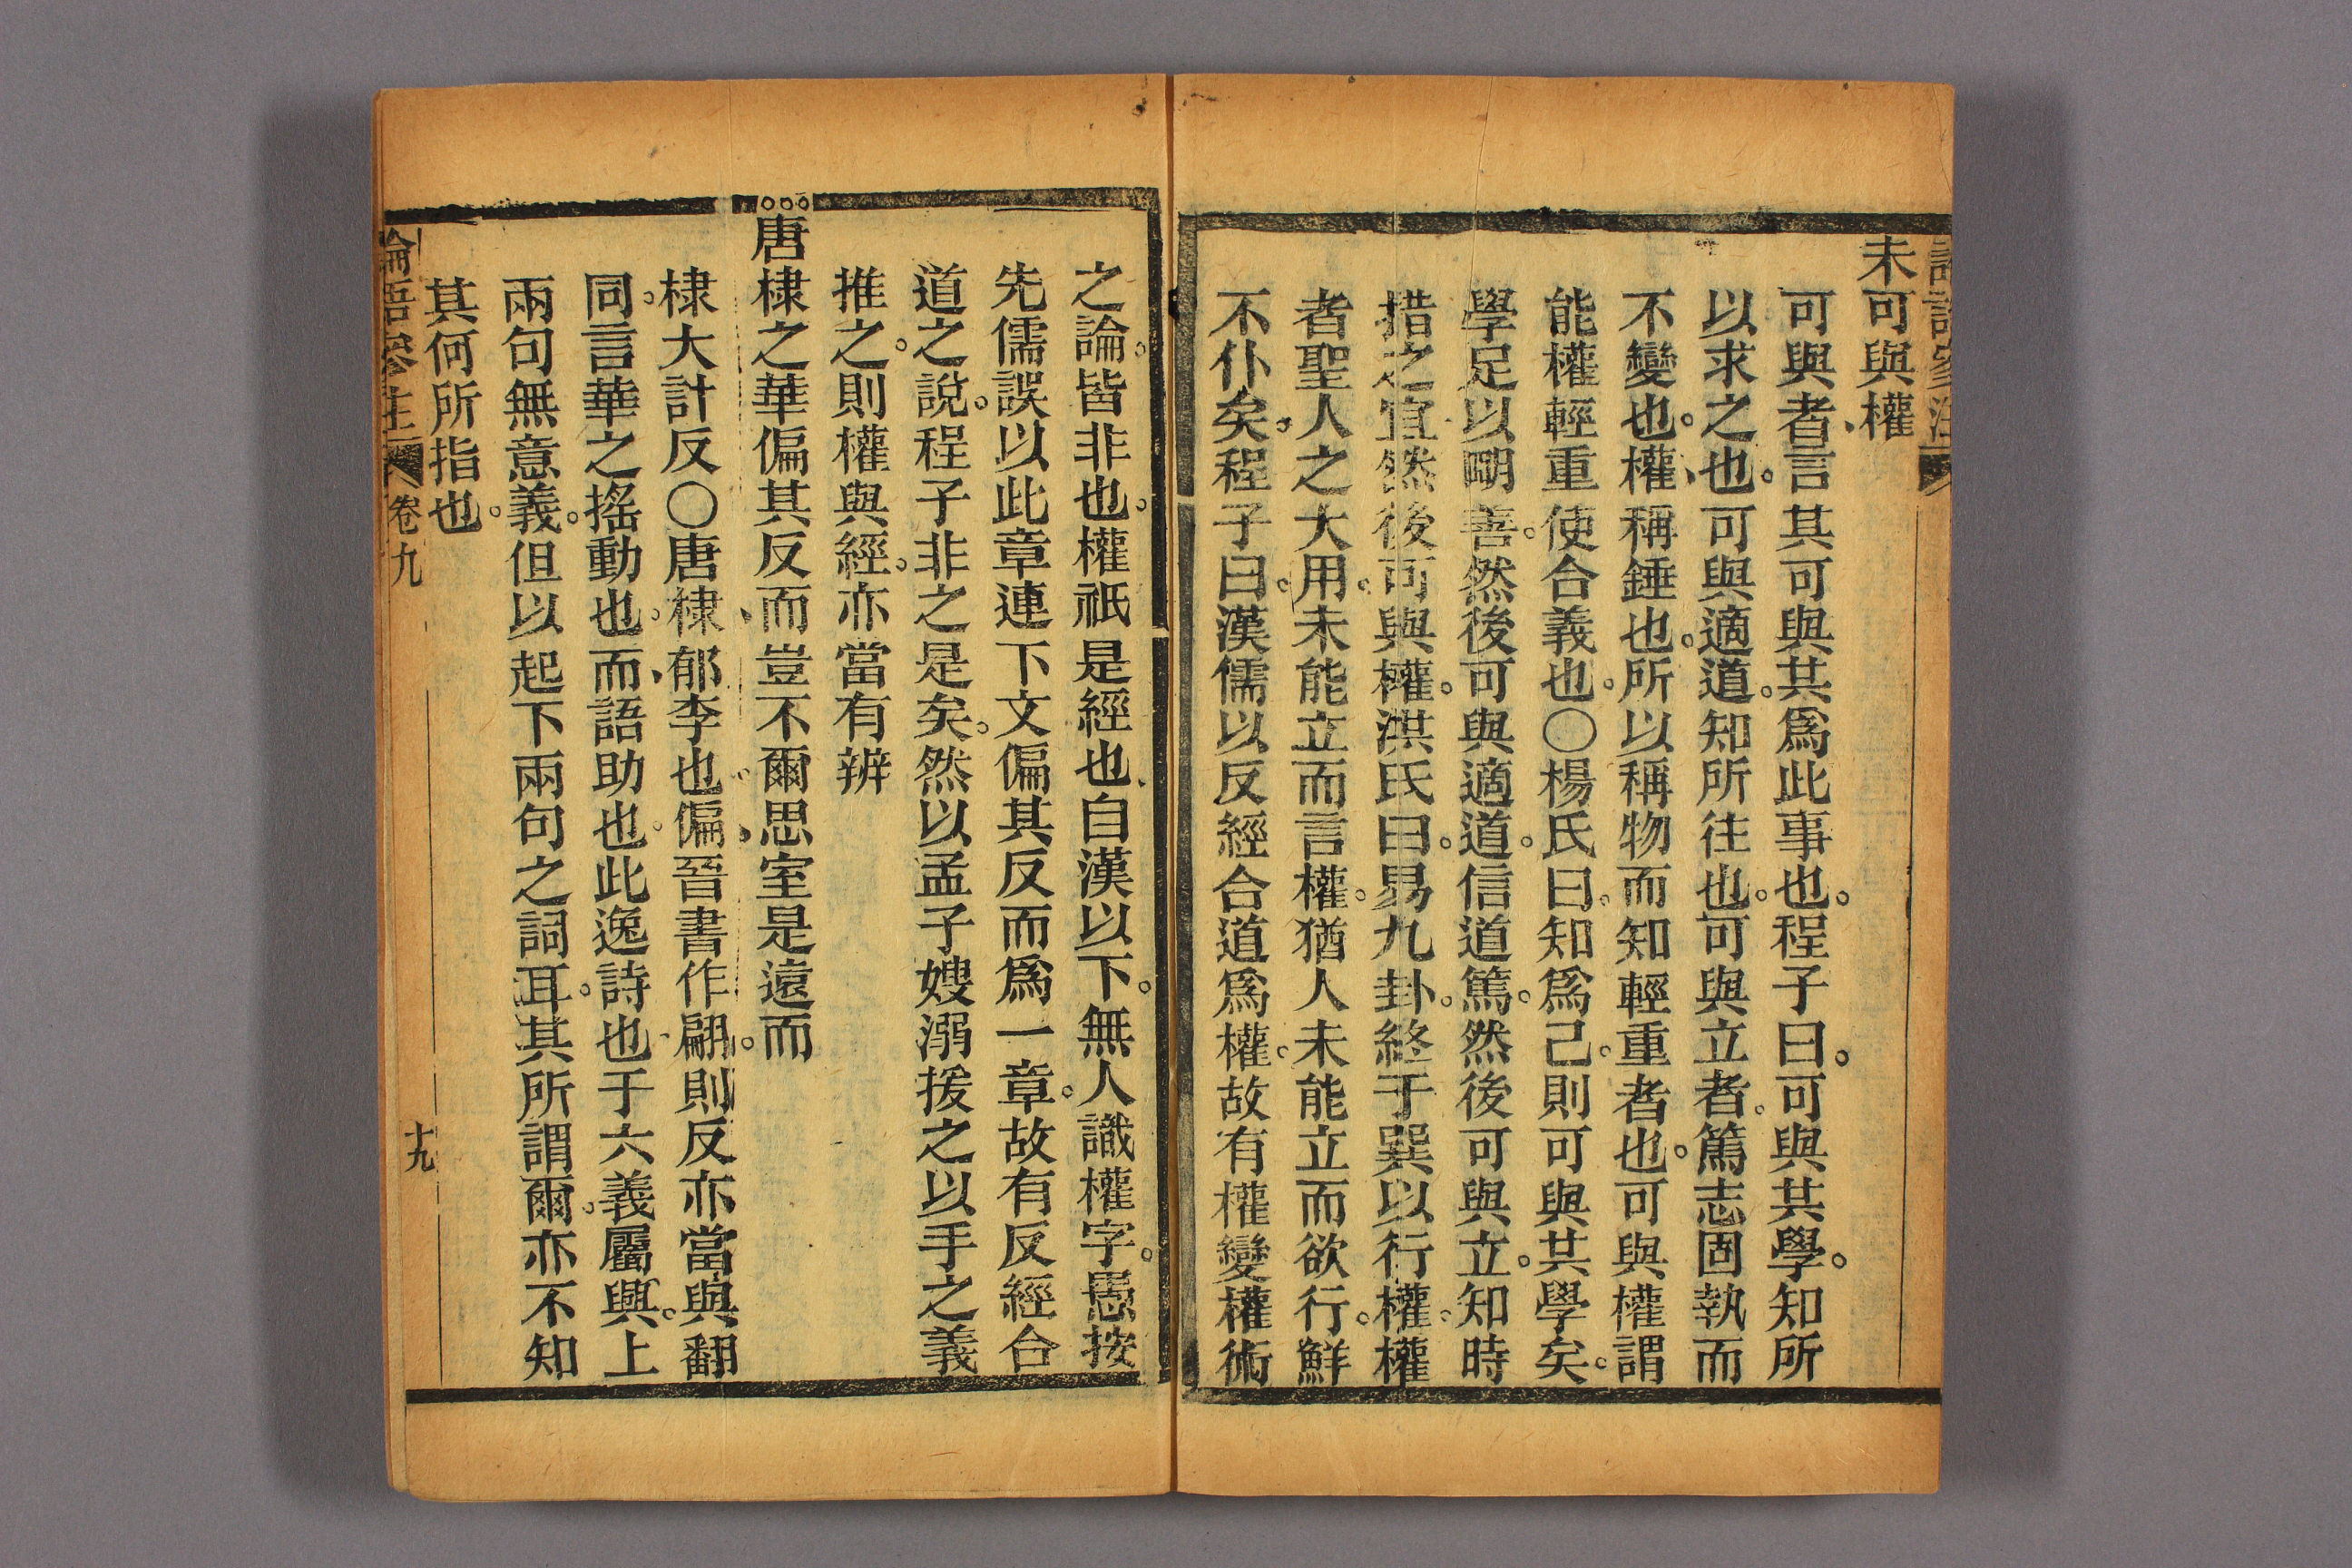 未可與權
可與者言其可與共爲此事也程子曰可與共學知所
以求之也可與適道知所往也可與立者篤志固執而
不變也權稱錘也所以稱物而知輕重者也可與權謂
能權輕重使合義也○楊氏曰知爲己則可與共學矣
學足以明善然後可與適道信道篤然後可與立知時
措之宜然後可與權洪氏曰易九卦終于巽以行權權
者聖人之大用未能立而言權猶人未能立而欲行鮮
不仆矣程子曰漢儒以反經合道爲權故有權變權術
之論皆非也權祇是經也自漢以下無人識權字愚按
先儒誤以此章連下文偏其反而爲一章故有反經合
道之說程子非之是矣然以孟子嫂溺援之以手之義
推之則權與經亦當有辨
唐棣之華偏其反而豈不爾思室是遠而
棣大計反○唐棣郁李也偏晉書作翩則反亦當與翻
同言華之搖動也而語助也此逸詩也于六義屬興上
兩句無意義但以起下兩句之詞耳其所謂爾亦不知
其何所指也
論語 卷九 十九